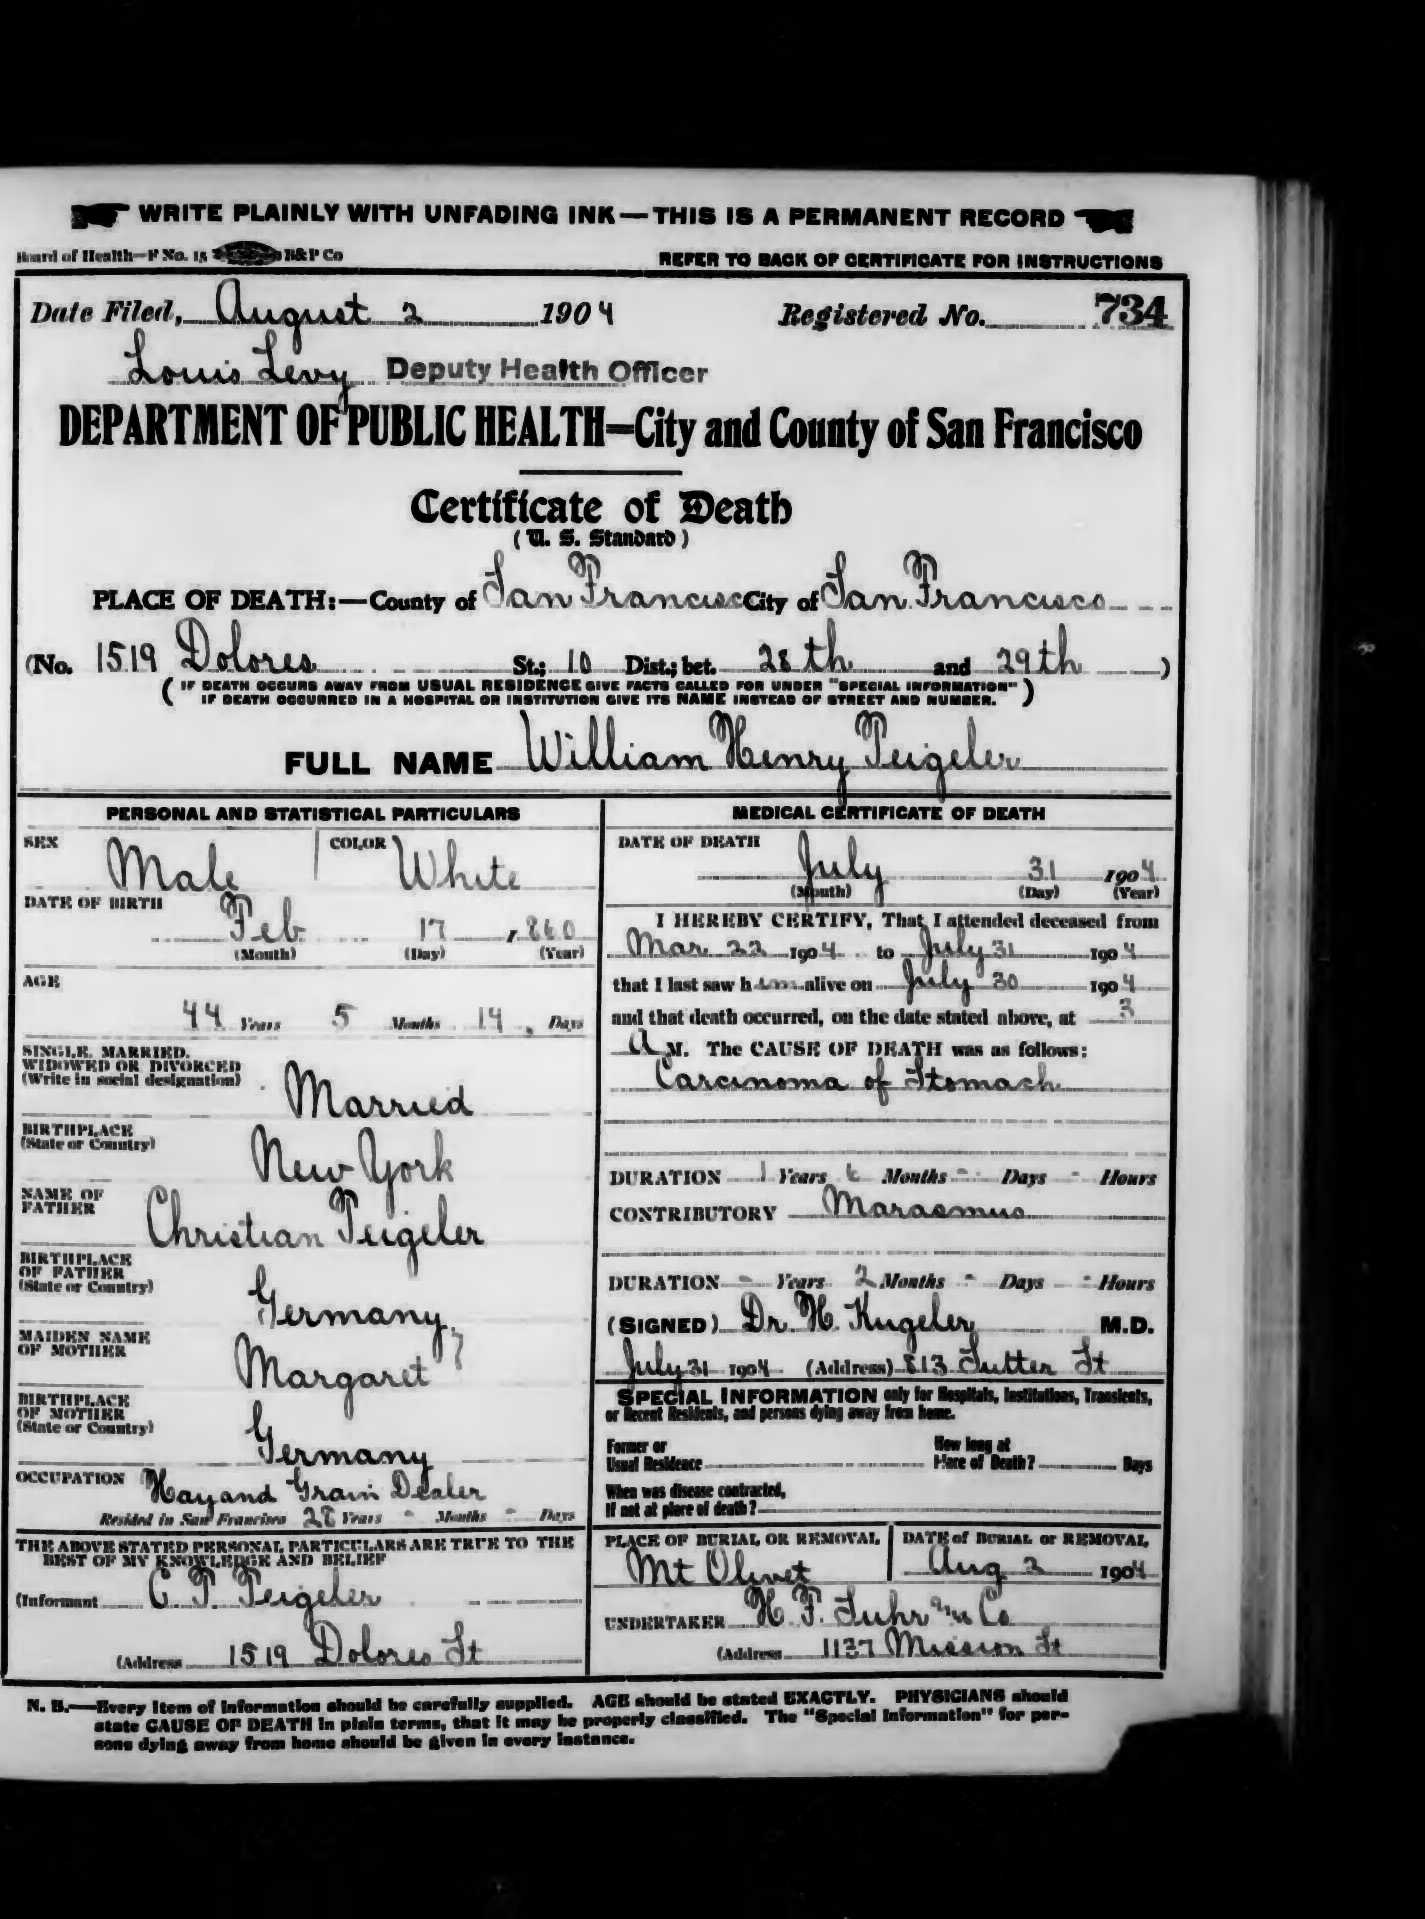 WRITE PLAINLY WITH UNFADING INK — THIS IS A PERMANENT RECORD
Board of Health—F No. 15 B&P Co REFER TO BACK OF CERTIFICATE FOR INSTRUCTIONS
Date Filed, August 2 1904 Registered No. 734
Louis Levy Deputy Health Officer
DEPARTMENT OF PUBLIC HEALTH=City and County of San Francisco
Certificate of Death
(U. S. Standard)
PLACE OF DEATH:—County of San Francisco City of San Francisco
(No. 1519 Dolores St.; 10 Dist.; bet. 28th and 29th )
( IF DEATH OCCURS AWAY FROM USUAL RESIDENCE GIVE FACTS CALLED FOR UNDER "SPECIAL INFORMATION" )
IF DEATH OCCURRED IN A HOSPITAL OR INSTITUTION GIVE ITS NAME INSTEAD OF STREET AND NUMBER.
FULL NAME William Henry Teigeler
PERSONAL AND STATISTICAL PARTICULARS
SEX Male COLOR White
DATE OF BIRTH
Feb 17, 1860
(Month) (Day) (Year)
AGE
44 Years 5 Months 14, Days
SINGLE, MARRIED,
WIDOWED OR DIVORCED
(Write in social designation) Married
BIRTHPLACE
(State or Country) New York
NAME OF
FATHER Christian Teigeler
BIRTHPLACE
OF FATHER
(State or Country) Germany
MAIDEN NAME
OF MOTHER Margaret ?
BIRTHPLACE
OF MOTHER
(State or Country) Germany
OCCUPATION Hay and Grain Dealer
Resided in San Francisco 28 Years - Months - Days
THE ABOVE STATED PERSONAL PARTICULARS ARE TRUE TO THE
BEST OF MY KNOWLEDGE AND BELIEF
(Informant C. T. Teigeler
(Address 1519 Dolores St
MEDICAL CERTIFICATE OF DEATH
DATE OF DEATH
July 31 1904
(Month) (Day) (Year)
I HEREBY CERTIFY, That I attended deceased from
Mar 22 1904 to July 31 1904
that I last saw him alive on July 30 1904
and that death occurred, on the date stated above, at 3
A M. The CAUSE OF DEATH was as follows:
Carcinoma of Stomach
DURATION 1 Years 6 Months - Days - Hours
CONTRIBUTORY Marasmus
DURATION - Years 2 Months - Days - Hours
(SIGNED) Dr. H. Kugeler M.D.
July 31 1904 (Address) 813 Sutter St
SPECIAL INFORMATION only for Hospitals, Institutions, Transients,
or Recent Residents, and persons dying away from home.
Former or
Usual Residence
How long at
Place of Death? Days
When was disease contracted,
If not at place of death?
PLACE OF BURIAL OR REMOVAL DATE of BURIAL or REMOVAL
Mt Olivet Aug 2 1904
UNDERTAKER H. F. Suhr and Co
(Address 1137 Mission St
N. B.—Every item of information should be carefully supplied. AGE should be stated EXACTLY. PHYSICIANS should
state CAUSE OF DEATH in plain terms, that it may be properly classified. The "Special Information" for per-
sons dying away from home should be given in every instance.